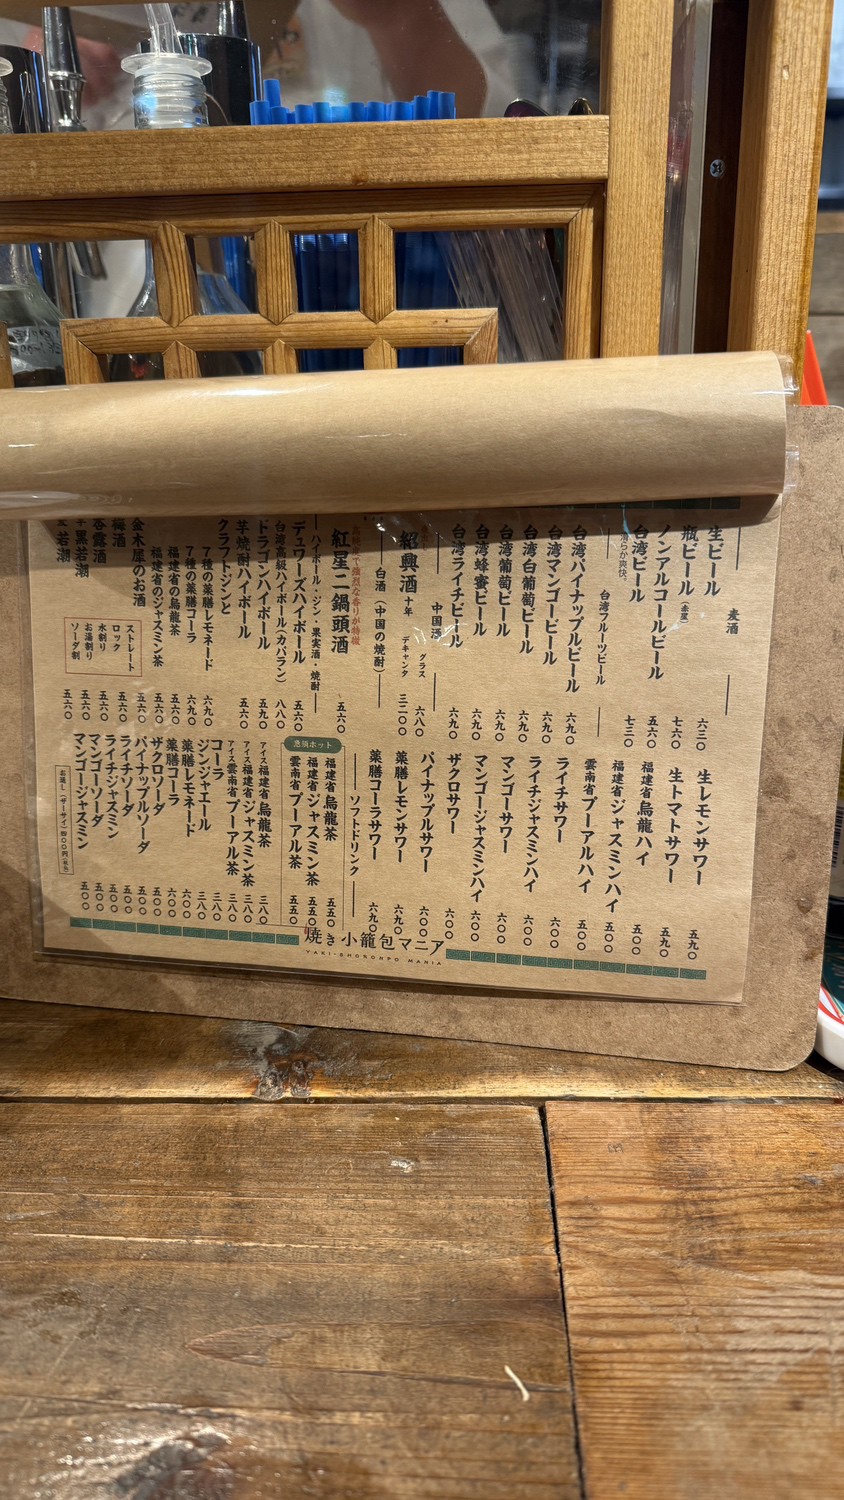 麦酒
生ビール 六三〇
瓶ビール(赤星) 七六〇
ノンアルコールビール 五六〇
台湾ビール 七三〇
台湾フルーツビール
台湾パイナップルビール 六九〇
台湾マンゴービール 六九〇
台湾白葡萄ビール 六九〇
台湾葡萄ビール 六九〇
台湾蜂蜜ビール 六九〇
台湾ライチビール 六九〇
中国酒
紹興酒 十年
グラス 六八〇
デキャンタ 三二〇〇
白酒(中国の焼酎)
紅星二鍋頭酒 五六〇
ハイボール・ジン・果実酒・焼酎
デュワーズハイボール 五六〇
台湾高級ハイボール(カバラン) 八八〇
ドラゴンハイボール 五九〇
芋焼酎ハイボール 五六〇
クラフトジンと
7種の薬膳レモネード 六九〇
7種の薬膳コーラ 六九〇
福建省の烏龍茶 五六〇
福建省のジャスミン茶 五六〇
金木犀のお酒 五六〇
梅酒 五六〇
吞露酒 五六〇
黒若潮 五六〇
若潮 五六〇
ストレート
ロック
水割り
お湯割り
ソーダ割
生レモンサワー 五九〇
生トマトサワー 五九〇
福建省烏龍ハイ 五〇〇
福建省ジャスミンハイ 五〇〇
雲南省プーアルハイ 五〇〇
ライチサワー 六〇〇
ライチジャスミンハイ 六〇〇
マンゴーサワー 六〇〇
マンゴージャスミンハイ 六〇〇
ザクロサワー 六〇〇
パイナップルサワー 六〇〇
薬膳レモンサワー 六九〇
薬膳コーラサワー 六九〇
ソフトドリンク
急須ホット
福建省烏龍茶 五五〇
福建省ジャスミン茶 五五〇
雲南省プーアル茶 五五〇
アイス福建省烏龍茶 三八〇
アイス福建省ジャスミン茶 三八〇
アイス雲南省プーアル茶 三八〇
コーラ 三八〇
ジンジャエール 三八〇
薬膳レモネード 六〇〇
薬膳コーラ 六〇〇
ザクロソーダ 五〇〇
パイナップルソーダ 五〇〇
ライチソーダ 五〇〇
ライチジャスミン 五〇〇
マンゴーソーダ 五〇〇
マンゴージャスミン 五〇〇
焼き小籠包マニア
YAKI-SHORONPO MANIA